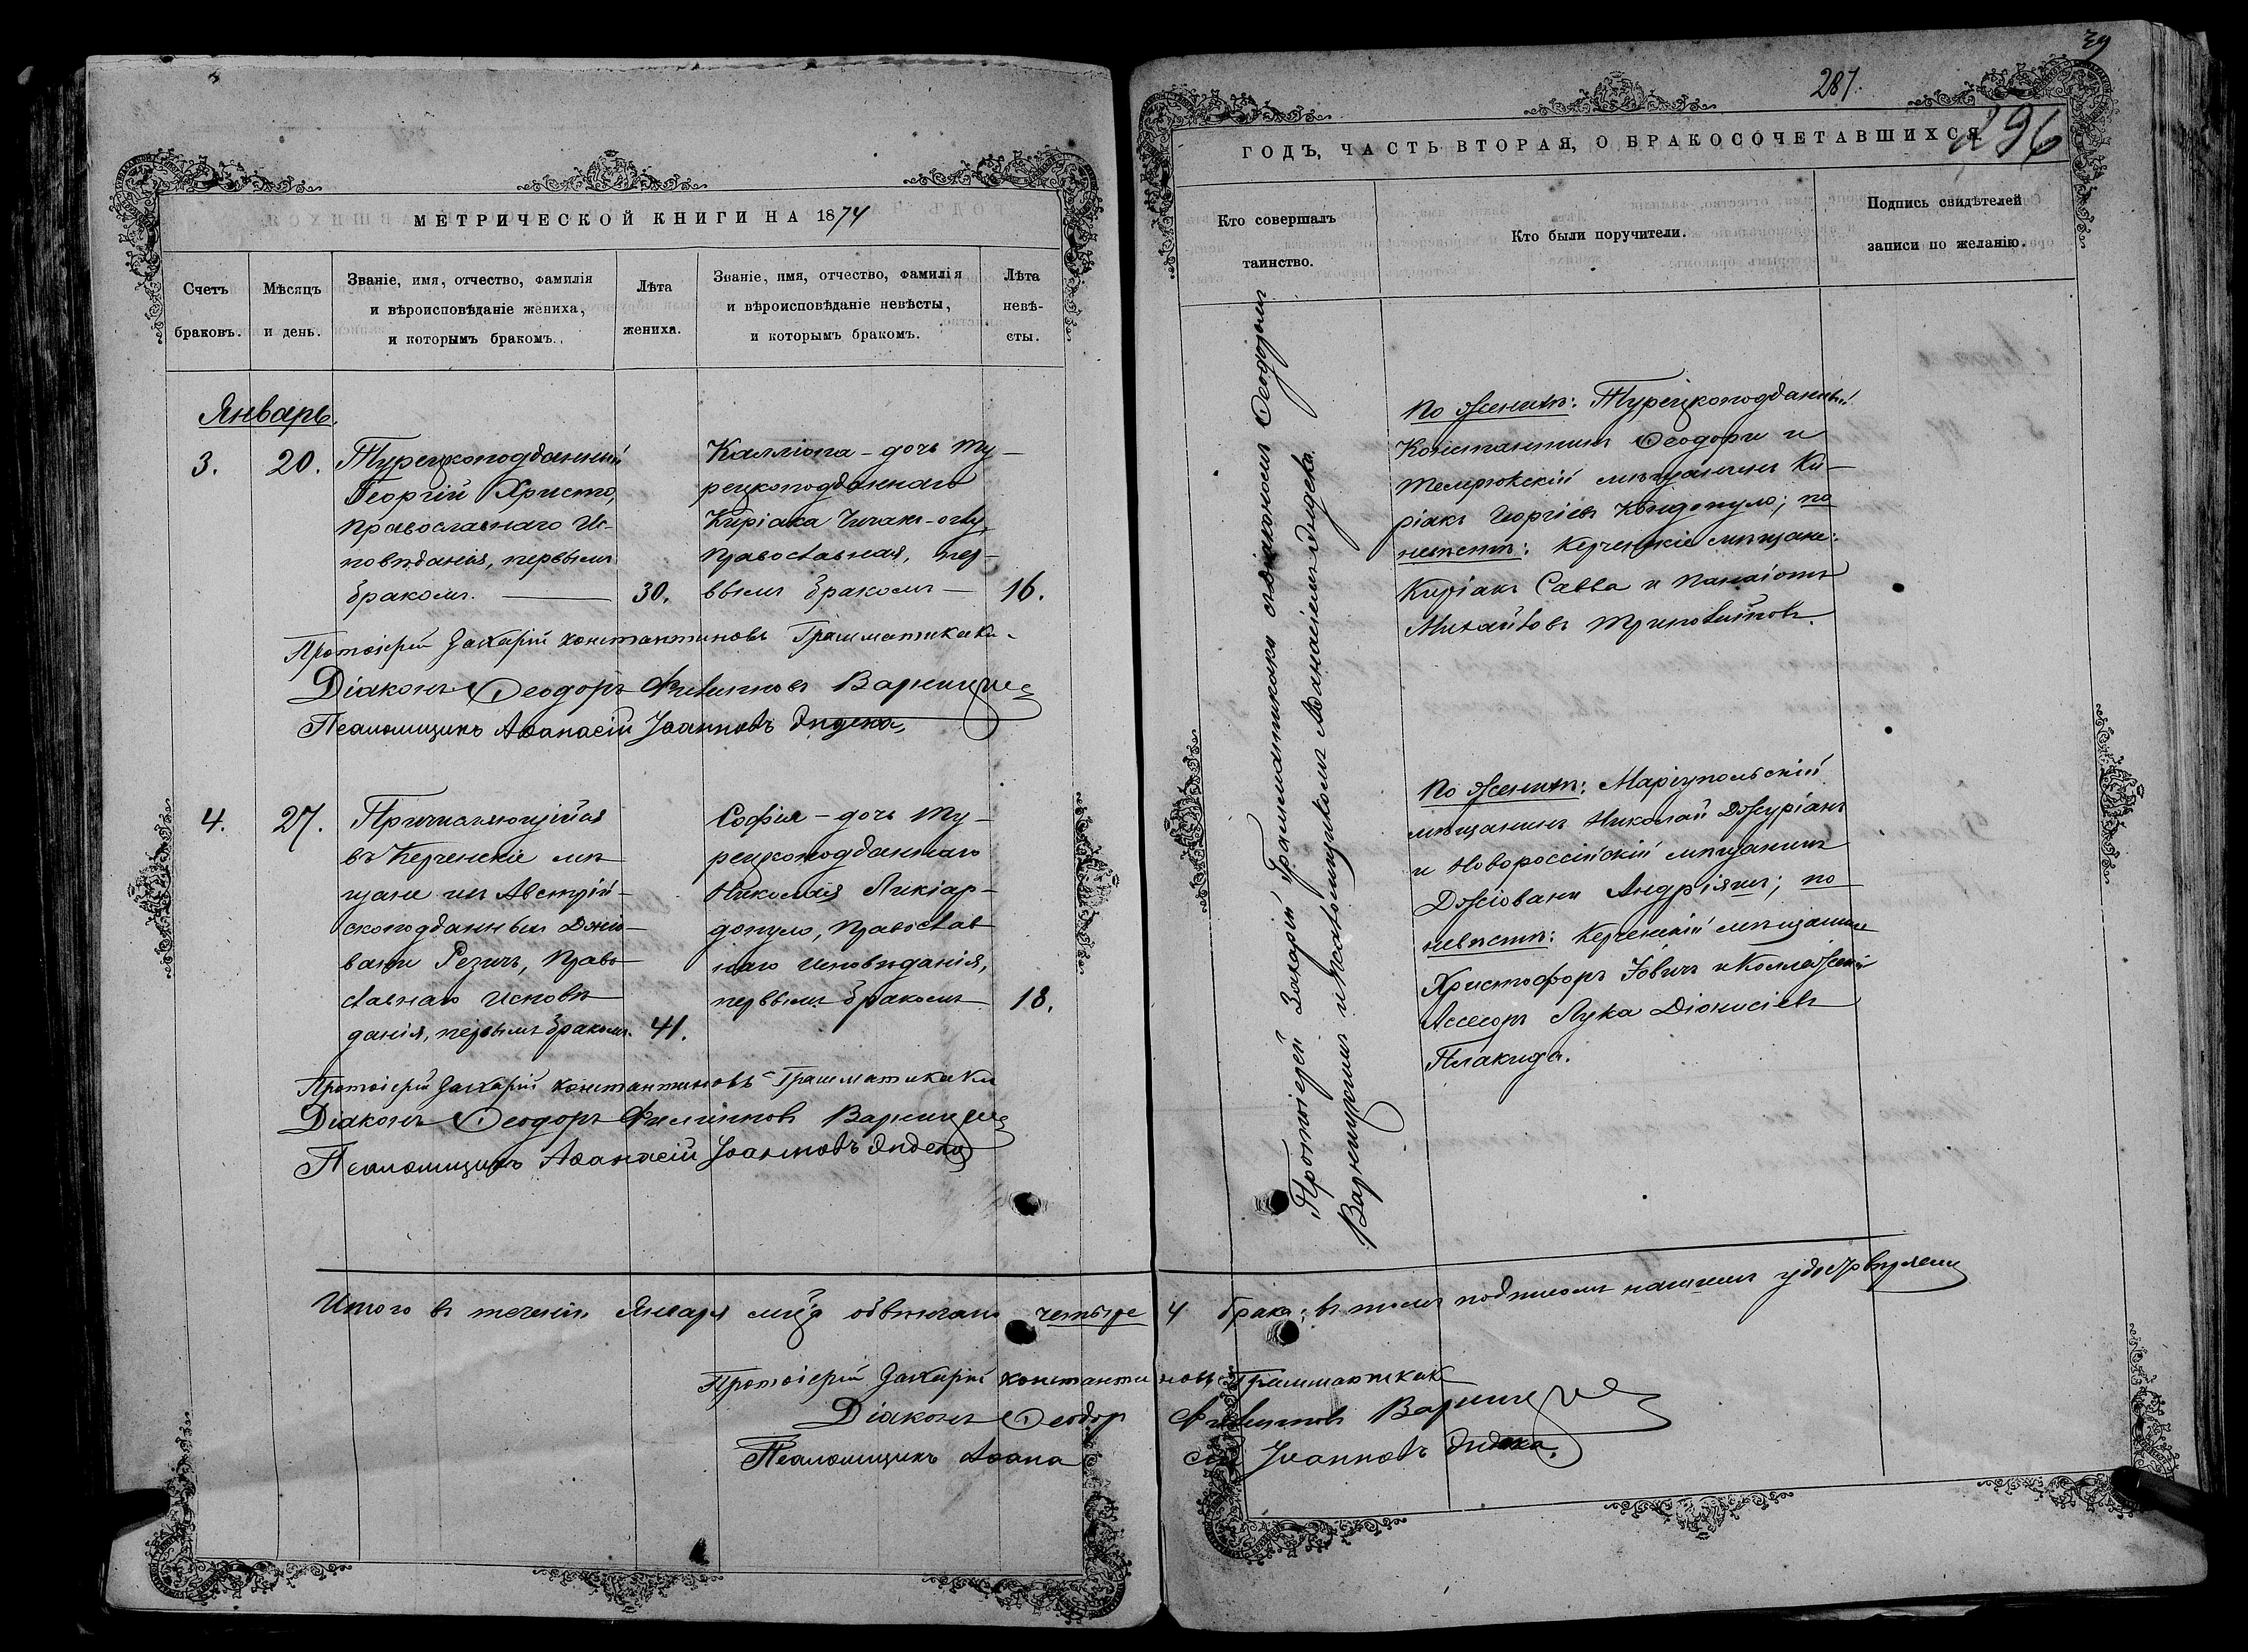 МЕТРИЧЕСКОЙ КНИГИ НА 1874
Счетъ браковъ.
Мѣсяцъ и день.
Званіе, имя, отчество, фамилія
и вѣроисповѣданіе жениха,
и которымъ бракомъ.
Лѣта
жениха.
Званіе, имя, отчество, фамилія
и вѣроисповѣданіе невѣсты,
и которымъ бракомъ.
Лѣта
невѣ-
сты.
Январь.
3.
20.
Турецкоподданный
Георгій Христо,
православнаго Ис-
повѣданія, первымъ
бракомъ.
30.
Калліопа - дочь Ту-
рецкоподданнаго
Киріака
православная, пер-
вымъ бракомъ
16.
Протоіерей Захарій Константиновъ Грамматикаки
Діаконъ Ѳеодоръ Филипповъ
Псаломщикъ Аѳанасій Іоанновъ Эндека
4.
27.
Причисляющійся
въ Керченскіе мѣ
щане изъ Австрій-
скоподданныхъ Джіо-
вани Резичъ, право
славнаго исповѣ
данія, первымъ бракомъ.
41.
Софія - дочь Ту-
рецкоподданнаго
Николая Ликіар-
допуло, православ
наго исповѣданія,
первымъ бракомъ
18.
Протоіерей Захарій Константиновъ Грамматикаки
Діаконъ Ѳеодоръ Филипповъ
Псаломщикъ Аѳанасій Іоанновъ Эндека
Итого въ теченіи Января мца обвѣнчано четыре
Протоіерей Захарій Константи
Діаконъ Ѳеодор
Псаломщикъ Аѳана
39
287.
296
ГОДЪ, ЧАСТЬ ВТОРАЯ, О БРАКОСОЧЕТАВШИХСЯ
Кто совершалъ
таинство.
Кто были поручители.
Подпись свидѣтелей
записи по желанію.
Протоіерей Захарій Грамматикаки съ діакономъ Ѳеодоромъ
и псаломщикомъ Аѳанасіемъ Эндека.
По женихѣ: Турецкоподданный
Константинъ Ѳеодори и
Темрюкскій мѣщанинъ Ки-
ріакъ Георгіевъ по
невѣстѣ: Керченскіе мѣщане:
Киріакъ Савва и Панаіотъ
Михайловъ
По женихѣ: Маріупольскій
мѣщанинъ Николай Джуріанъ
и Новороссійскій мѣщанинъ
Джіовани Андріяши; по
невѣстѣ: Керченскій мѣщанинъ
Христофоръ Іовичъ и Коллежскій
Асесоръ Лука Діонисіевъ
Плакида.
4 брака; въ томъ подписомъ нашимъ удостовѣряемъ
новъ Грамматикаки
Филипповъ
сій Іоанновъ Эндека.